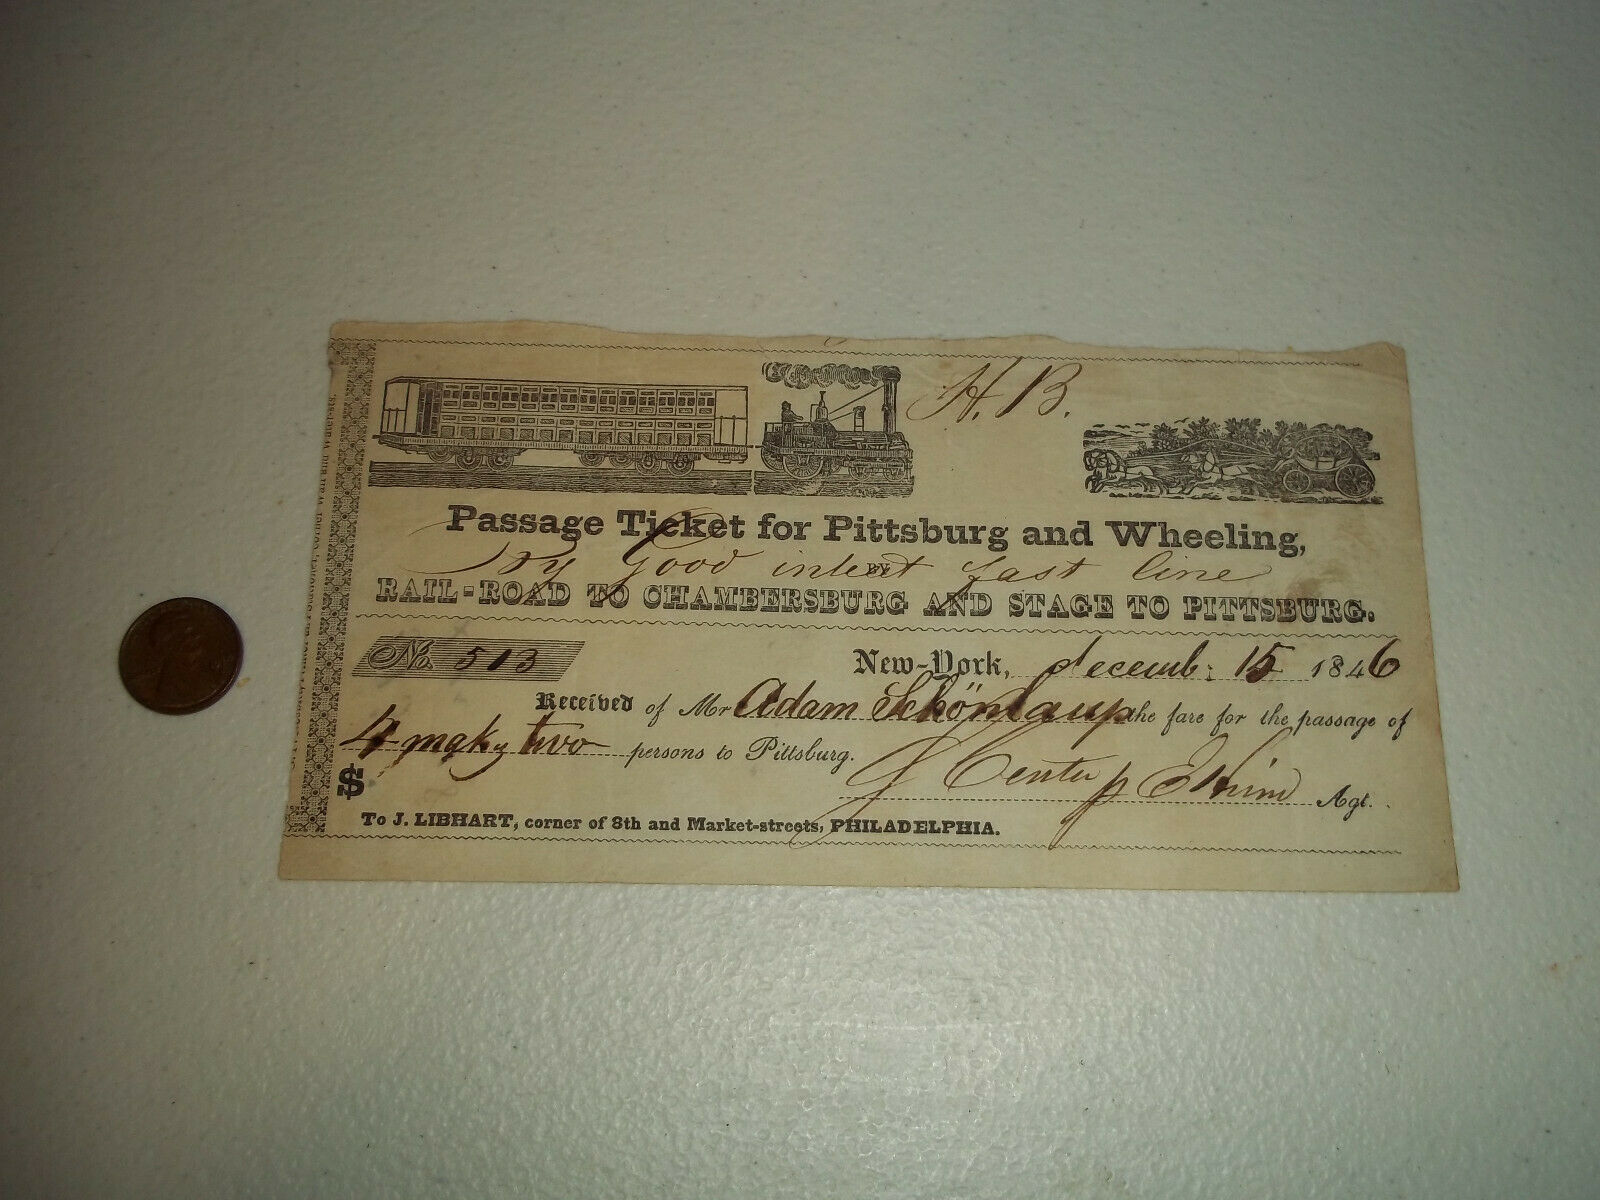 H. B.
Passage Ticket for Pittsburg and Wheeling,
By Good intent fast line
RAIL-ROAD TO CHAMBERSBURG AND STAGE TO PITTSBURG.
No. 513 New-York, decemb: 15 1846
Received of Mr Adam Schönlaup the fare for the passage of
4 makg two persons to Pittsburg.
$ Agt.
To J. LIBHART, corner of 8th and Market-streets, PHILADELPHIA.